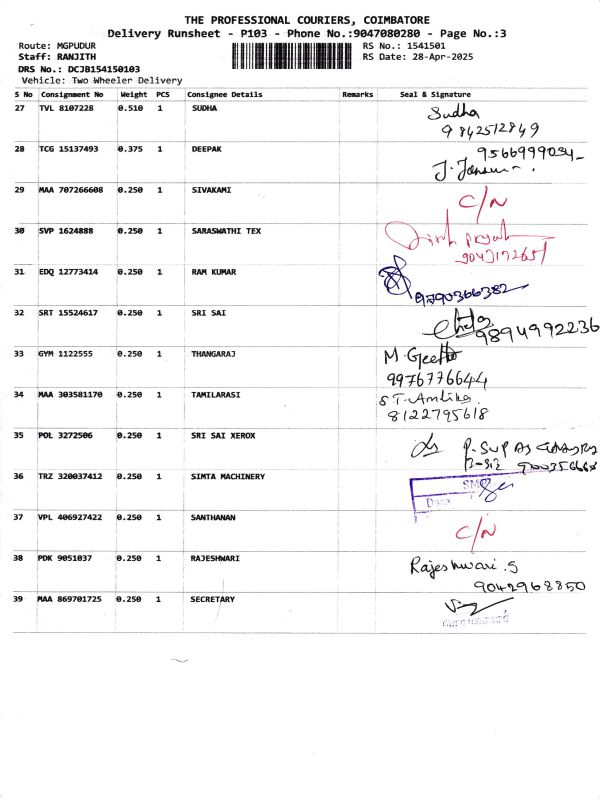 THE PROFESSIONAL COURIERS, COIMBATORE
Delivery Runsheet - P103 - Phone No.:9047080280 - Page No.:3
Route: MGPUDUR RS No.: 1541501
Staff: RANJITH RS Date: 28-Apr-2025
DRS No.: DCJB154150103
Vehicle: Two Wheeler Delivery
S No Consignment No Weight PCS Consignee Details Remarks Seal & Signature
27 TVL 8107228 0.510 1 SUDHA Sudha
9842512849
28 TCG 15137493 0.375 1 DEEPAK
29 MAA 707266608 0.250 1 SIVAKAMI C/N
30 SVP 1624888 0.250 1 SARASWATHI TEX
31 EDQ 12773414 0.250 1 RAM KUMAR
9790366382
32 SRT 15524617 0.250 1 SRI SAI
9894992236
33 GYM 1122555 0.250 1 THANGARAJ M. Geetha
9976776644
34 MAA 303581170 0.250 1 TAMILARASI
8122795618
35 POL 3272506 0.250 1 SRI SAI XEROX
36 TRZ 320037412 0.250 1 SIMTA MACHINERY
Date
37 VPL 406927422 0.250 1 SANTHANAN C/N
38 PDK 9051037 0.250 1 RAJESHWARI Rajeshwari. S
9042968850
39 MAA 869701725 0.250 1 SECRETARY